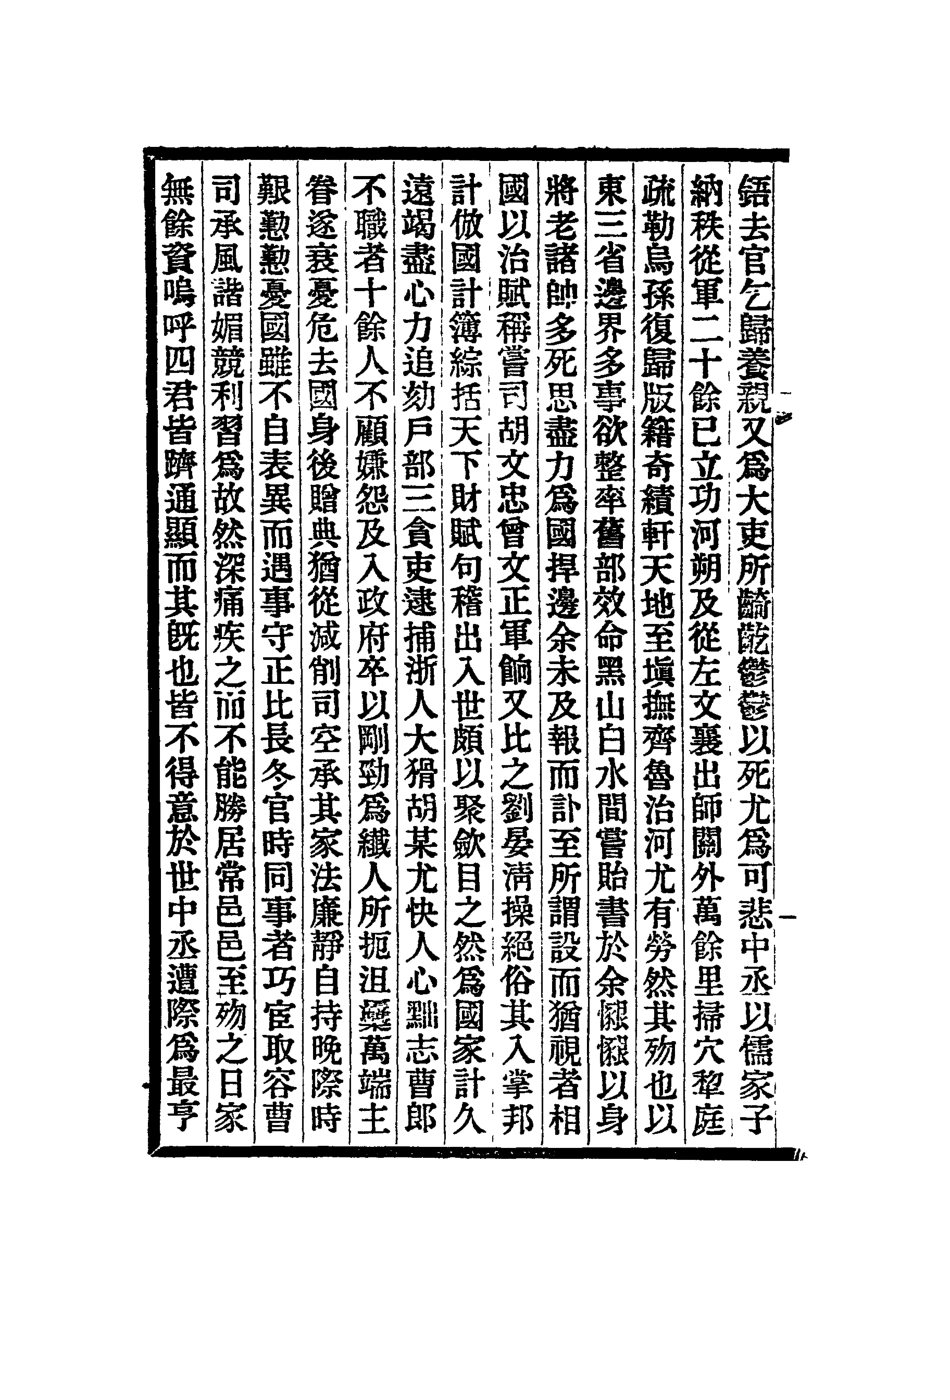 鋙去官乞歸養親又爲大吏所齮齕鬱鬱以死尤爲可悲中丞以儒家子
納秩從軍二十餘已立功河朔及從左文襄出師關外萬餘里掃穴犂庭
疏勒烏孫復歸版籍奇績軒天地至塡撫齊魯治河尤有勞然其歾也以
東三省邊界多事欲整率舊部效命黑山白水間嘗貽書於余懇懇以身
將老諸帥多死思盡力爲國捍邊余未及報而訃至所謂設而猶視者相
國以治賦稱嘗司胡文忠曾文正軍餉又比之劉晏淸操絕俗其入掌邦
計倣國計簿綜括天下財賦句稽出入世頗以聚歛目之然爲國家計久
遠竭盡心力追劾戶部三貪吏逮捕浙人大猾胡某尤快人心黜志曹郎
不職者十餘人不顧嫌怨及入政府卒以剛勁爲纖人所扼沮蘖萬端主
眷遂衰憂危去國身後贈典猶從減削司空承其家法廉靜自持晚際時
艱懃懃憂國雖不自表異而遇事守正比長冬官時同事者巧宦取容曹
司承風諧媚競利習爲故然深痛疾之而不能勝居常邑邑至歾之日家
無餘資嗚呼四君皆躋通顯而其旣也皆不得意於世中丞遭際爲最亨